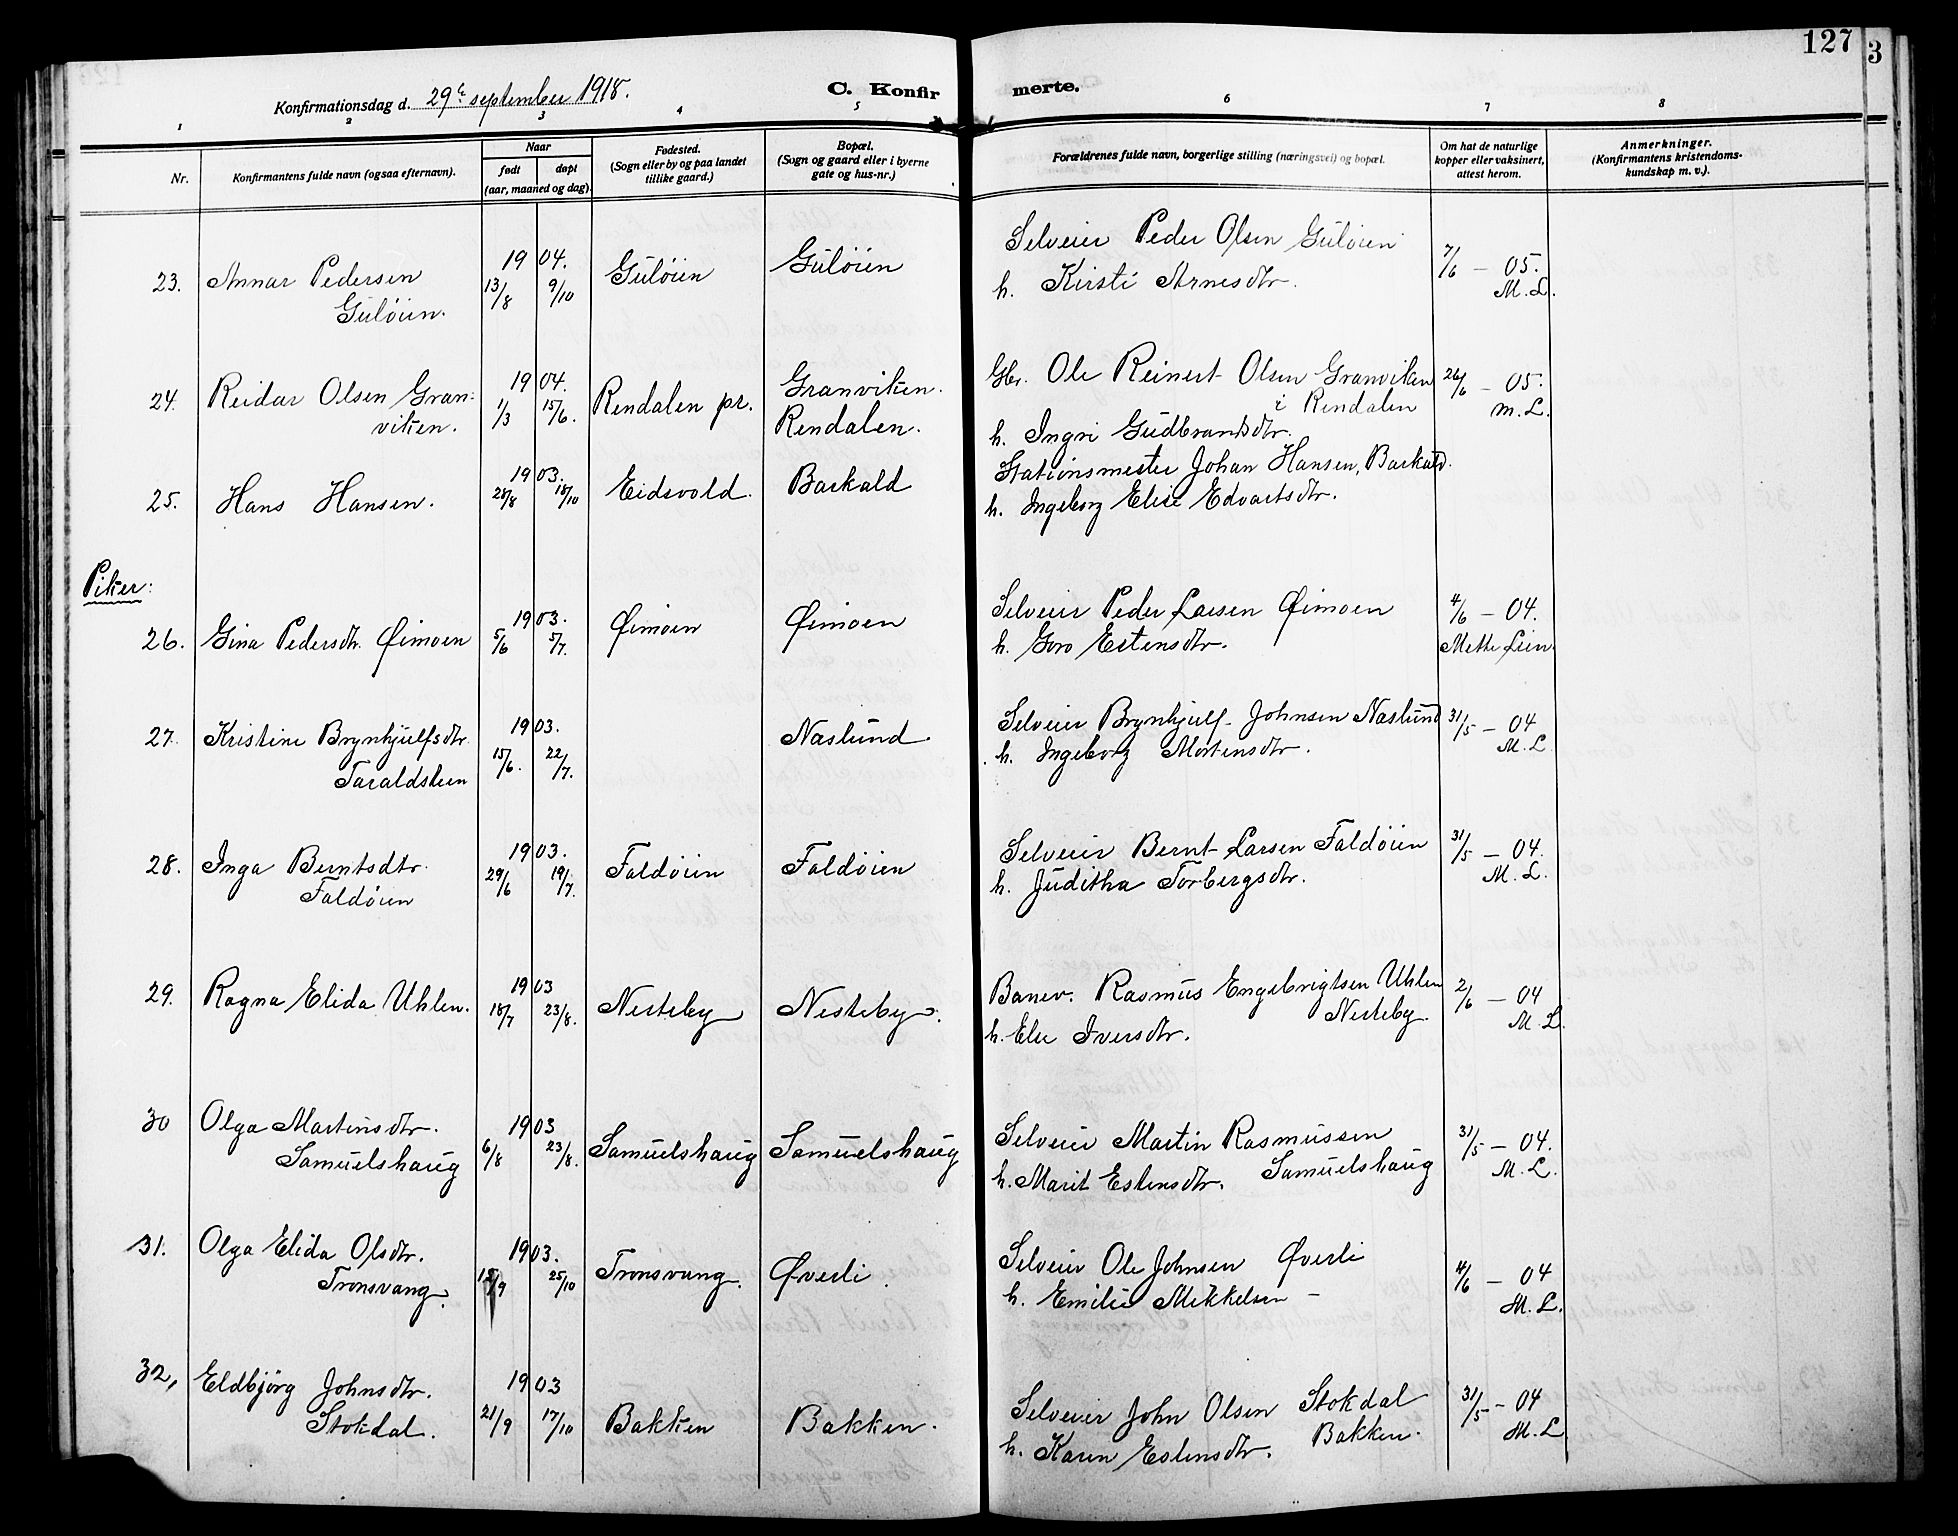 127
3
Konfirmationsdag d. 29de september 1918. C. Konfirmerte.
1 2 3 4 5 6 7 8
Nr.
Konfirmantens fulde navn (ogsaa efternavn).
Naar
født døpt
(aar, maaned og dag).
Fødested.
(Sogn eller by og paa landet
tillike gaard.)
Bopæl.
(Sogn og gaard eller i byerne
gate og hus-nr.)
Forældrenes fulde navn, borgerlige stilling (næringsvei) og bopæl.
Om hat de naturlige
kopper eller vaksinert,
attest herom.
Anmerkninger.
(Konfirmantens kristendoms-
kundskap m. v.).
23. Annar Pedersen
Guløien.
1904.
13/8 9/10
Guløien
Guløien
Selveier Peder Olsen Guløien
h. Kirsti Arnesdtr.
7/6 - 05.
M. L.
24. Reidar Olsen Gran-
viken.
1904.
1/3 15/6.
Rendalen pr.
Granviken.
Rendalen.
Gbr. Ole Reinert Olsen Granviken
i Rendalen
h. Ingri Gudbrandsdtr.
26/6 - 05.
M. L.
25. Hans Hansen.
1903.
28/8 18/10
Eidsvold.
Barkald
Stationsmester Johan Hansen, Barkald.
h. Ingeborg Elise Edvartsdtr.
Piker:
26. Gina Pedersdtr. Øimoen
1903.
5/6 5/7.
Øimoen
Øimoen
Selveier Peder Larsen Øimoen
h. Goro Estensdtr.
4/6 - 04.
Mette Lien.
27. Kristine Brynhjulfsdtr.
Taraldsteen
1903.
15/6. 22/7.
Naslund.
Selveier Brynhjulf Johnsen Naslund
h. Ingeborg Mortensdtr.
31/5 - 04
M. L.
28. Inga Berntsdtr.
Faldøien
1903.
29/6 19/7.
Faldøien
Faldøien
Selveier Bernt Larsen Faldøien
h. Juditha Torbergsdtr.
31/5 - 04.
M. L.
29. Ragna Elida Uhlen.
1903
18/7 23/8.
Nesteby
Nesteby.
Banev. Rasmus Engebrigtsen Uhlen
Nesteby
h. Else Iversdtr.
2/6 - 04
M. L.
30 Olga Martinsdtr.
Samuelshaug
1903
6/8 23/8.
Samuelshaug
Samuelshaug
Selveier Martin Rasmussen
Samuelshaug
h. Marit Estensdtr.
31/5 - 04.
M. L.
31. Olga Elida Olsdtr.
Tronsvang.
1903.
/9 25/10
Tronsvang.
Øverli.
Selveier Ole Johnsen Øverli
h. Emilie Mikkelsen -
4/6 - 04
M. L.
32, Eldbjörg Johnsdtr.
Stokdal.
1903
21/9 17/10
Bakken
Bakken.
Selveier John Olsen Stokdal
Bakken.
h. Karen Estensdtr.
31/5 - 04
M. L